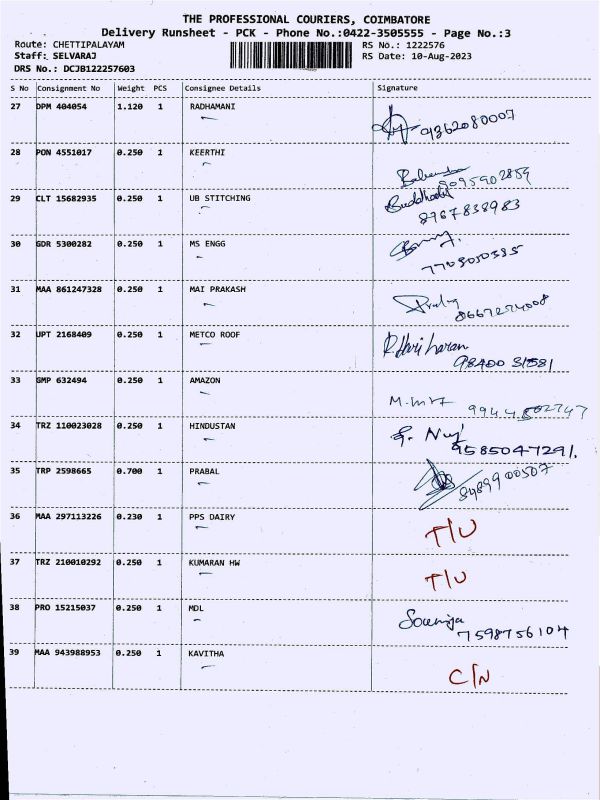 THE PROFESSIONAL COURIERS, COIMBATORE
Delivery Runsheet - PCK - Phone No.:0422-3505555 - Page No.:3
Route: CHETTIPALAYAM RS No.: 1222576
Staff: SELVARAJ RS Date: 10-Aug-2023
DRS No.: DCJB122257603
S No Consignment No Weight PCS Consignee Details Signature
27 DPM 404054 1.120 1 RADHAMANI
9362080007
28 PON 4551017 0.250 1 KEERTHI
9095902859
29 CLT 15682935 0.250 1 UB STITCHING
8967838983
30 GDR 5300282 0.250 1 MS ENGG
7705050385
31 MAA 861247328 0.250 1 MAI PRAKASH
8667274008
32 UPT 2168409 0.250 1 METCO ROOF R.Hari haran
98400 31581
33 GMP 632494 0.250 1 AMAZON
9944802747
34 TRZ 110023028 0.250 1 HINDUSTAN
9585047291.
35 TRP 2598665 0.700 1 PRABAL
8489900507
36 MAA 297113226 0.230 1 PPS DAIRY T/U
37 TRZ 210010292 0.250 1 KUMARAN HW T/U
38 PRO 15215037 0.250 1 MDL Sowmya
7598756104
39 MAA 943988953 0.250 1 KAVITHA C/N